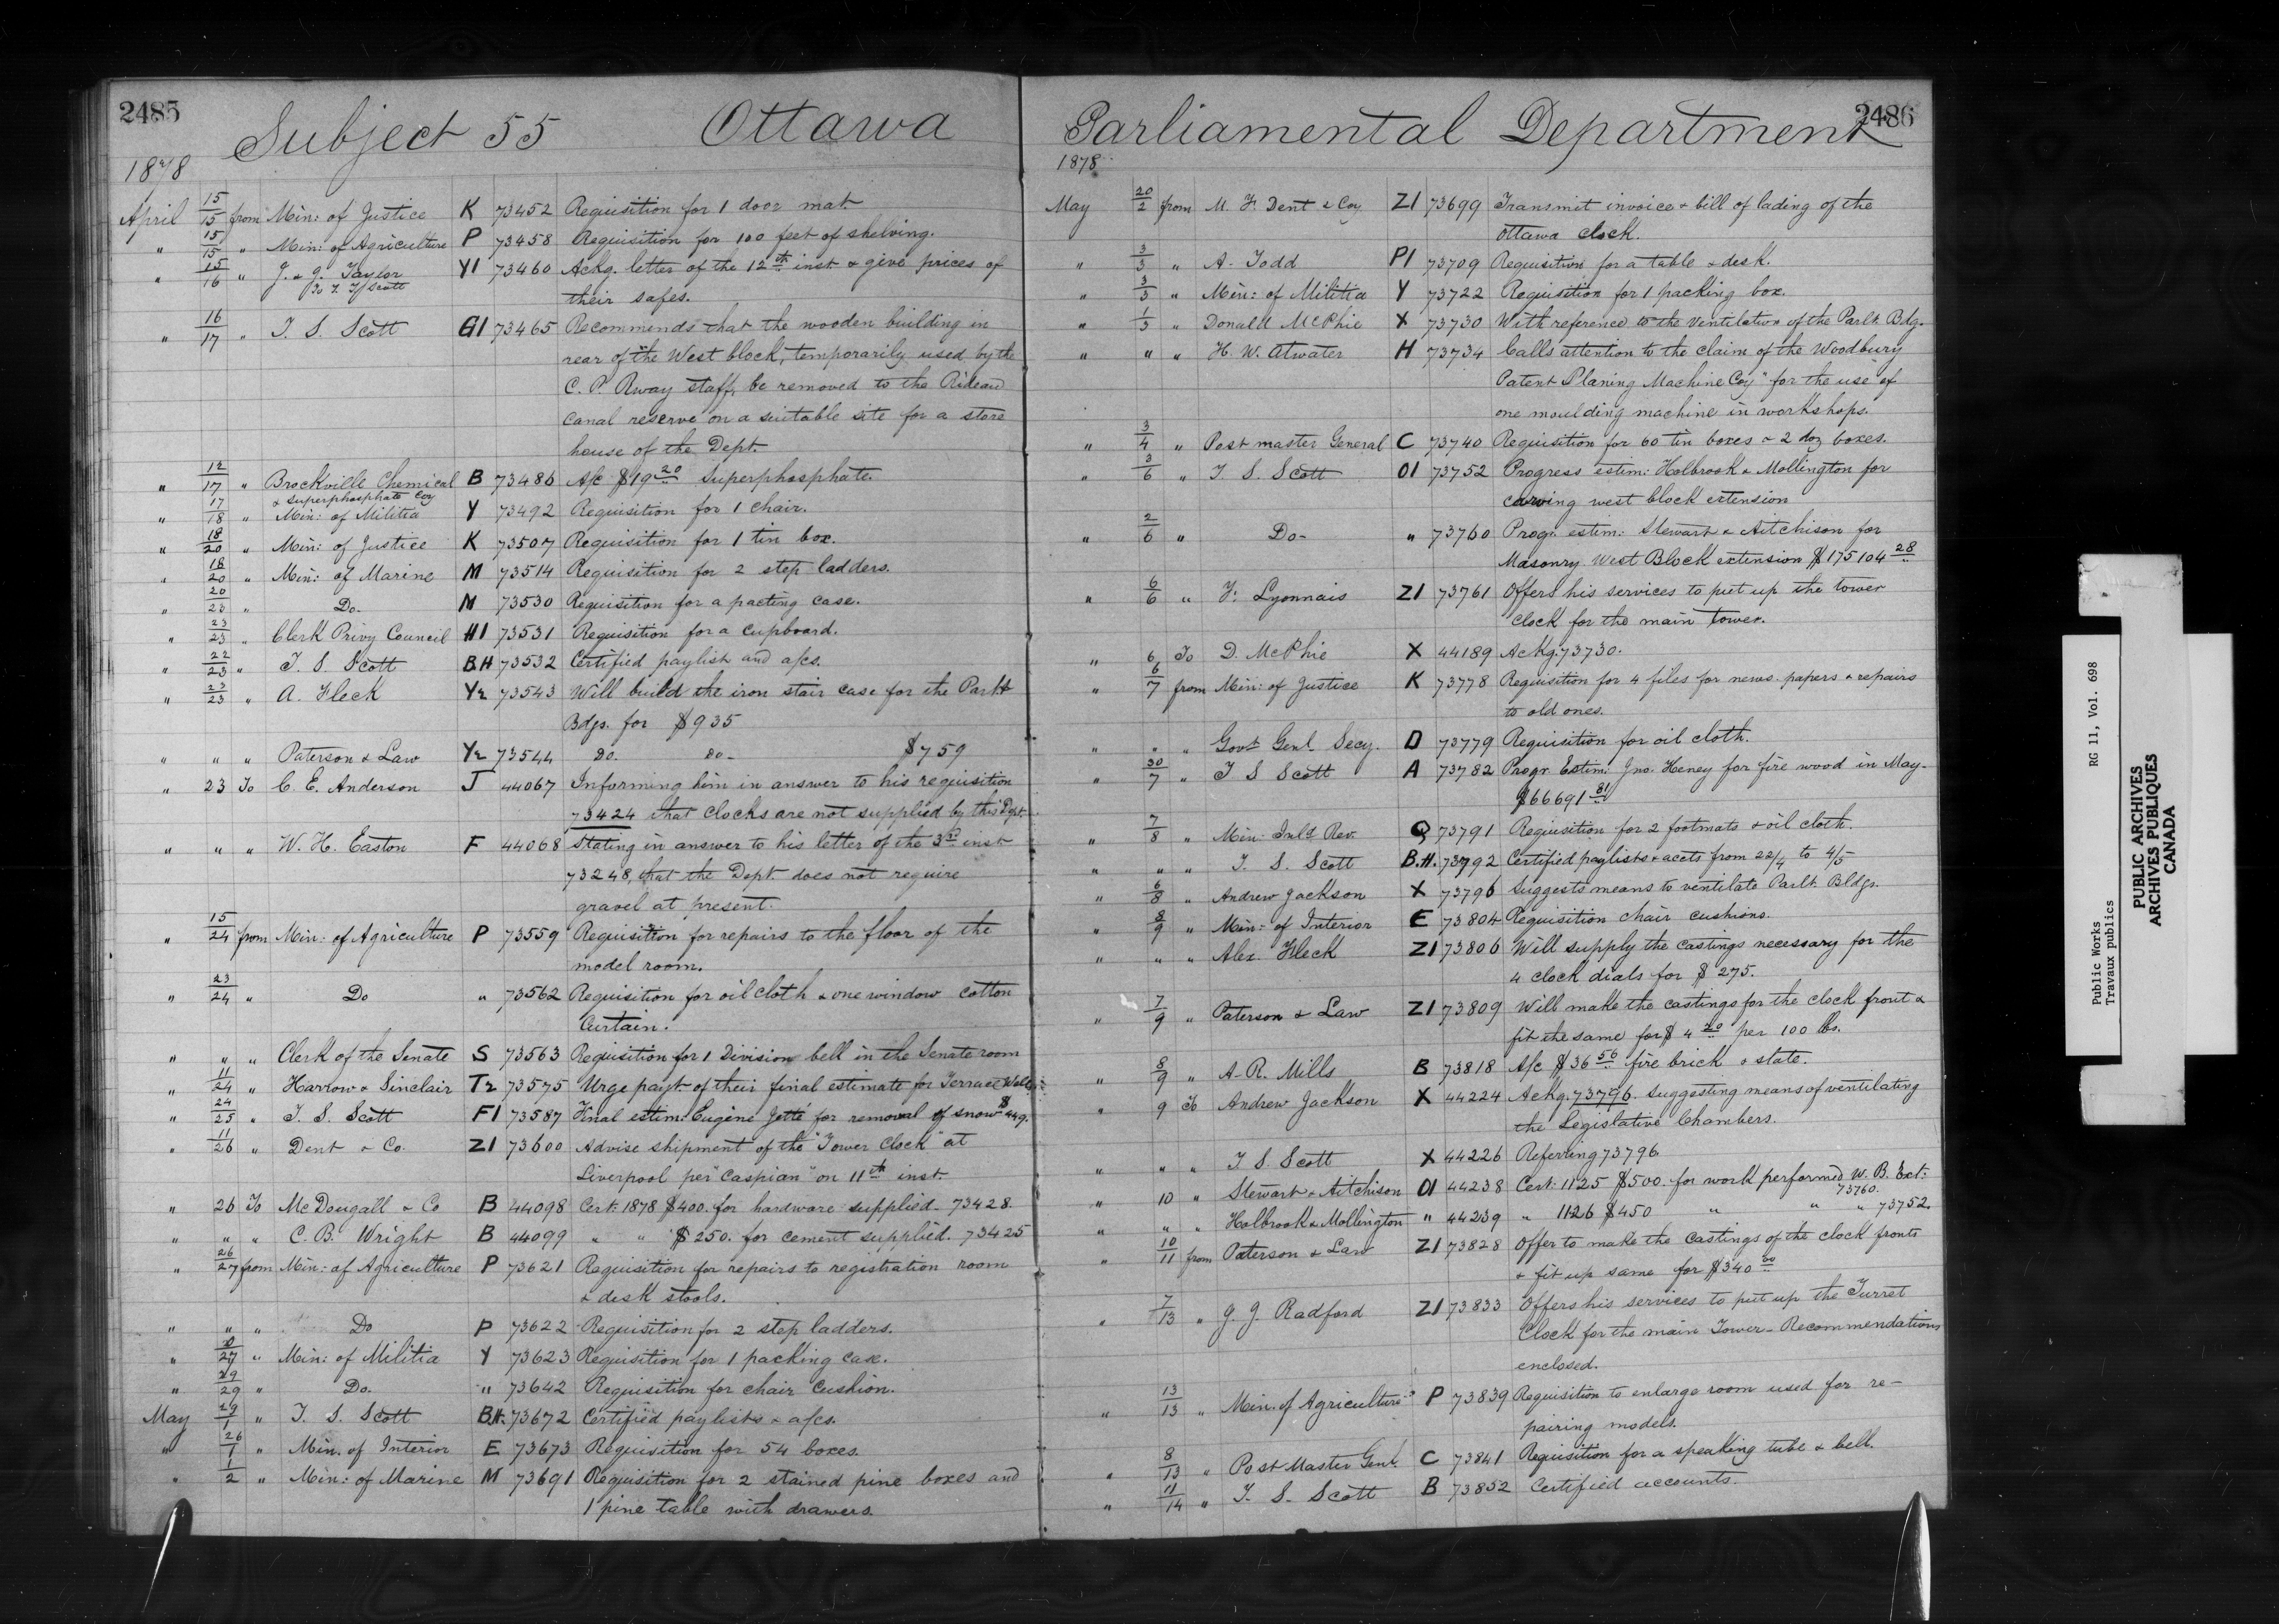 2485
Subject 55 Ottawa
1878
April 15/15 from Min: of Justice K 73452 Requisition for 1 door mat.
" 15/15 " Min: of Agriculture P 73458 Requisition for 100 feet of shelving.
" 15/16 " J. & J. Taylor Y1 73460 Ackg. letter of the 12th inst & give prices of
their safes.
" 16/17 " T. S. Scott G1 73465 Recommends that the wooden building in
rear of the West block, temporarily used by the
C. P. Rway staff, be removed to the Rideau
Canal reserve on a suitable site for a store
house of the Dept.
" 12/17 " Brockville Chemical B 73486 A/c $19 20 Superphosphate.
& Superphosphate Coy
" 17/18 " Min: of Militia Y 73492 Requisition for 1 chair.
" 18/20 " Min: of Justice K 73507 Requisition for 1 tin box.
" 18/20 " Min: of Marine M 73514 Requisition for 2 step ladders.
" 20/23 " Do. M 73530 Requisition for a packing case.
" 23/23 " Clerk Privy Council H1 73531 Requisition for a Cupboard.
" 22/23 " T. S. Scott B.H 73532 Certified paylist and a/cs.
" 23/23 " A. Fleck Y2 73543 Will build the iron stair case for the Parlt
Bdgs. for $935
" " " Paterson & Law Y2 73544 Do. Do- $759
" 23 To C. E. Anderson J 44067 Informing him in answer to his requisition
73424 that clocks are not supplied by this Dept.
" " " W. H. Easton F 44068 Stating in answer to his letter of the 3rd inst
73248, that the Dept. does not require
gravel at present.
" 15/24 from Min: of Agriculture P 73559 Requisition for repairs to the floor of the
model room.
" 23/24 " Do " 73562 Requisition for oil cloth & one window cotton
Curtain.
" " " Clerk of the Senate S 73563 Requisition for 1 Division bell in the Senate room
" 11/24 " Harrow & Sinclair T2 73575 Urge payt. of their final estimate for Terrace Walls.
" 24/25 " T. S. Scott F1 73587 Final estim: Eugène Jetté for removal of snow $449.
" 11/26 " Dent & Co. Z1 73600 Advise shipment of the "Tower Clock" at
Liverpool per "Caspian" on 11th inst.
" 26 To McDougall & Co B 44098 Cert: 1878 $400. for hardware supplied. 73428.
" " " C. B. Wright B 44099 " " $250. for cement supplied. 73425
" 26/27 from Min: of Agriculture P 73621 Requisition for repairs to registration room
& desk stools.
" " " Do P 73622 Requisition for 2 step ladders.
" 27 " Min: of Militia Y 73623 Requisition for 1 packing case.
" 29/29 " Do. " 73642 Requisition for chair Cushion.
May 29/1 " T. S. Scott B.H. 73672 Certified paylists & a/cs.
" 26/1 " Min. of Interior E 73673 Requisition for 54 boxes.
" 1/2 " Min: of Marine M 73691 Requisition for 2 stained pine boxes and
1 pine table with drawers.
2486
Parliamental Department
1878
May 20/2 from M. F. Dent & Coy Z1 73699 Transmit invoice & bill of lading of the
Ottawa clock.
" 3/3 " A. Todd P1 73709 Requisition for a table & desk.
" 3/3 " Min: of Militia Y 73722 Requisition for 1 packing box.
" 1/3 " Donald McPhie X 73730 With reference to the Ventilation of the Parlt. Bdg.
" " " H. W. Atwater H 73734 Calls attention to the claim of the Woodbury
Patent Planing Machine Coy" for the use of
one moulding machine in workshops.
" 3/4 " Post master General C 73740 Requisition for 60 tin boxes & 2 doz boxes.
" 3/6 " T. S. Scott O1 73752 Progress estim: Holbrook & Mollington for
carving west block extension
" 2/6 " Do- " 73760 Progr. estim: Stewart & Aitchison for
Masonry West Block extension $175104 28
" 6/6 " F. Lyonnais Z1 73761 Offers his services to put up the tower
Clock for the main tower.
" 6 To D. McPhie X 44189 Ackg. 73730.
" 6/7 from Min: of Justice K 73778 Requisition for 4 files for news papers & repairs
to old ones.
" " " Govr Genl Secy. D 73779 Requisition for oil cloth.
" 30/7 " T S Scott A 73782 Progr Estim: Jno. Heney for fire wood in May.
$66691 81
" 7/8 " Min: Inld Rev. Q 73791 Requisition for 2 footmats & oil cloth.
" " " T. S. Scott B.H. 73792 Certified paylists & accts from 22/4 to 4/5
" 6/8 " Andrew Jackson X 73796 Suggests means to ventilate Parlt. Bldgs.
" 8/9 " Min: of Interior E 73804 Requisition chair cushions.
" " " Alex. Fleck Z1 73806 Will supply the castings necessary for the
4 clock dials for $275.
" 7/9 " Paterson & Law Z1 73809 Will make the castings for the clock front &
fit the same for $4 20 per 100 lbs.
" 8/9 " A. R. Mills B 73818 A/c $36 56 fire brick & slate.
" 9 To Andrew Jackson X 44224 Ackg. 73796. Suggesting means of ventilating
the Legislative Chambers.
" " " T S Scott X 44226 Referring 73796
" 10 " Stewart & Aitchison O1 44238 Cert: 1125 $500. for work performed W. B. Ext:
73760.
" " " Holbrook & Mollington " 44239 " 1126 $450 " " " 73752.
" 10/11 from Paterson & Law Z1 73828 Offer to make the castings of the clock fronts
& fit up same for $340 00
" 7/13 " J. J. Radford Z1 73833 Offers his services to put up the Turret
Clock for the main Tower - Recommendations
enclosed.
" 13/13 " Min. of Agriculture P 73839 Requisition to enlarge room used for re-
pairing models.
" 8/13 " Post Master Genl. C 73841 Requisition for a speaking tube & bell.
" 11/14 " T. S. Scott B 73852 Certified accounts.
Public Works RG 11, Vol. 698
Travaux publics
PUBLIC ARCHIVES
ARCHIVES PUBLIQUES
CANADA